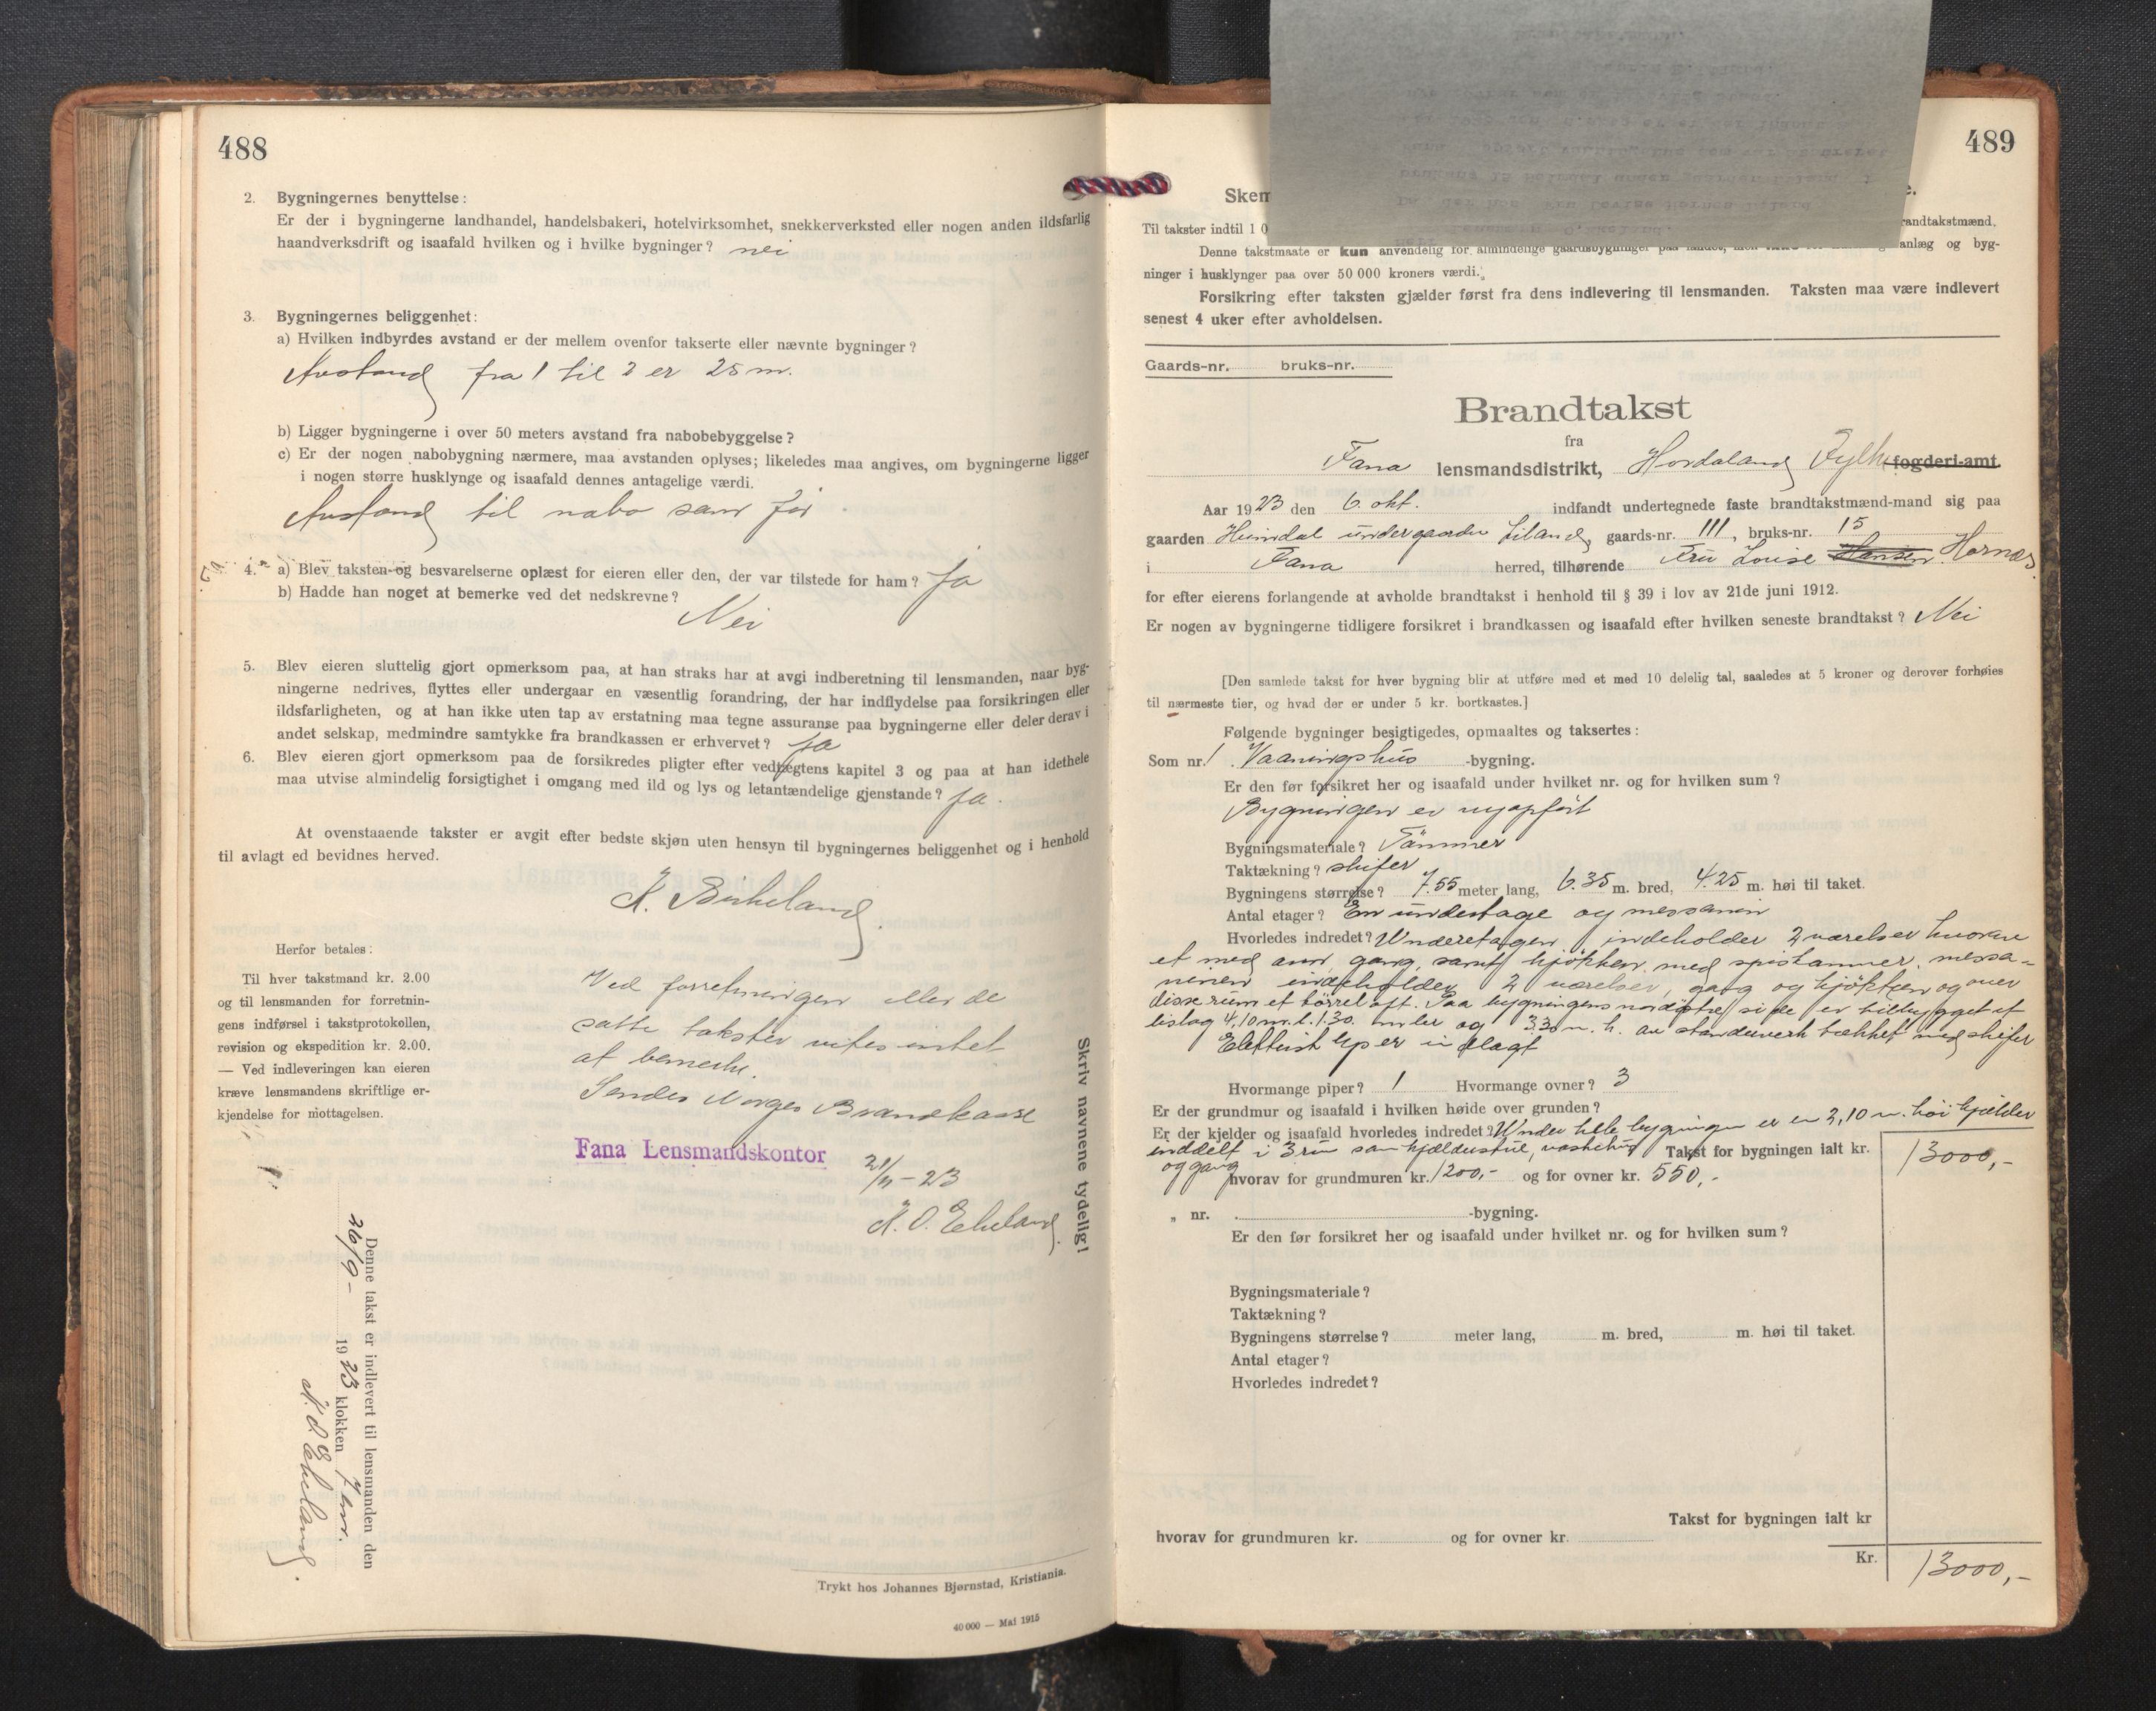 488
2. Bygningernes benyttelse:
Er der i bygningerne landhandel, handelsbakeri, hotelvirksomhet, snekkerverksted eller nogen anden ildsfarlig
haandverksdrift og isaafald hvilken og i hvilke bygninger? nei
3. Bygningernes beliggenhet:
a) Hvilken indbyrdes avstand er der mellem ovenfor takserte eller nævnte bygninger?
Avstand fra 1 til 2 er 25 m.
b) Ligger bygningerne i over 50 meters avstand fra nabobebyggelse?
c) Er der nogen nabobygning nærmere, maa avstanden oplyses; likeledes maa angives, om bygningerne ligger
i nogen større husklynge og isaafald dennes antagelige værdi.
Avstand til nabo som før
4. a) Blev taksten og besvarelserne oplæst for eieren eller den, der var tilstede for ham? Ja
b) Hadde han noget at bemerke ved det nedskrevne?
Nei
5. Blev eieren sluttelig gjort opmerksom paa, at han straks har at avgi indberetning til lensmanden, naar byg-
ningerne nedrives, flyttes eller undergaar en væsentlig forandring, der har indflydelse paa forsikringen eller
ildsfarligheten, og at han ikke uten tap av erstatning maa tegne assuranse paa bygningerne eller deler derav i
andet selskap, medmindre samtykke fra brandkassen er erhvervet? Ja
6. Blev eieren gjort opmerksom paa de forsikredes pligter efter vedtægtens kapitel 3 og paa at han idethele
maa utvise almindelig forsigtighet i omgang med ild og lys og letantændelige gjenstande? Ja.
At ovenstaaende takster er avgit efter bedste skjøn uten hensyn til bygningernes beliggenhet og i henhold
til avlagt ed bevidnes herved.
K. Birkeland
Herfor betales:
Til hver takstmand kr. 2.00
og til lensmanden for forretnin-
gens indførsel i takstprotokollen,
revision og ekspedition kr. 2.00.
— Ved indleveringen kan eieren
kræve lensmandens skriftlige er-
kjendelse for mottagelsen.
Ved forretningen eller de
satte takster vites intet
at bemerke.
Sendes Norges Brandkasse
Fana Lensmandskontor
21/11-23
K. O. Ekeland
Skriv navnene tydelig!
Denne takst er indlevert til lensmanden den
26/9- 1923 klokken 7 em.
K. O. Ekeland.
Trykt hos Johannes Bjørnstad, Kristiania.
40 000 — Mai 1915
489
Skem
Til takster indtil 1 0 randtakstmænd.
Denne takstmaate er kun anvendelig for almindelige gaardsbygninger paa landet, anlæg og byg-
ninger i husklynger paa over 50 000 kroners værdi.
Forsikring efter taksten gjælder først fra dens indlevering til lensmanden. Taksten maa være indlevert
senest 4 uker efter avholdelsen.
Gaards-nr. bruks-nr.
Brandtakst
fra
Fana lensmandsdistrikt, Hordaland Fylke fogderi-amt.
Aar 1923 den 6. okt. indfandt undertegnede faste brandtakstmænd-mand sig paa
gaarden Heimdal under gaarden Liland, gaards-nr. 111, bruks-nr. 15
i Fana herred, tilhørende Fru Louise Hansen Hornæs
for efter eierens forlangende at avholde brandtakst i henhold til § 39 i lov av 21de juni 1912.
Er nogen av bygningerne tidligere forsikret i brandkassen og isaafald efter hvilken seneste brandtakst? Nei
[Den samlede takst for hver bygning blir at utføre med et med 10 delelig tal, saaledes at 5 kroner og derover forhøies
til nærmeste tier, og hvad der er under 5 kr. bortkastes.]
Følgende bygninger besigtigedes, opmaaltes og taksertes:
Som nr. 1. Vaaningshus -bygning.
Er den før forsikret her og isaafald under hvilket nr. og for hvilken sum?
Bygningen er nyopført
Bygningsmateriale? Tømmer
Taktækning? skifer
Bygningens størrelse? 7.55 meter lang, 6.35 m. bred, 4.25 m. høi til taket.
Antal etager? En underetage og messanin
Hvorledes indredet? Underetagen indeholder 2 værelser hvorav
et med anr, gang, samt kjøkken med spiskammer, messa-
ninen indeholder 2 værelser, gang og kjøkken og over
disse rum et tørreloft. Paa bygningens nordøstre side er tilbygget et
bislag 4,10 m. l. 1.30 m br og 3.30 m. h. av standerverk tækket med skifer
Elektrisk lys er indlagt
Hvormange piper? 1 Hvormange ovner? 3
Er der grundmur og isaafald i hvilken høide over grunden?
Er der kjelder og isaafald hvorledes indredet? Under hele bygningen er en 2,10 m. høi kjælder
inddelt i 3 rum som kjælderstue, vaskehus Takst for bygningen ialt kr. 13000,-
og gang
hvorav for grundmuren kr. 1200,- og for ovner kr. 550,-
„ nr. -bygning.
Er den før forsikret her og isaafald under hvilket nr. og for hvilken sum?
Bygningsmateriale?
Taktækning?
Bygningens størrelse? meter lang, m. bred, m. høi til taket.
Antal etager?
Hvorledes indredet?
Takst for bygningen ialt kr
hvorav for grundmuren kr. og for ovner kr.
Kr. 13000,-